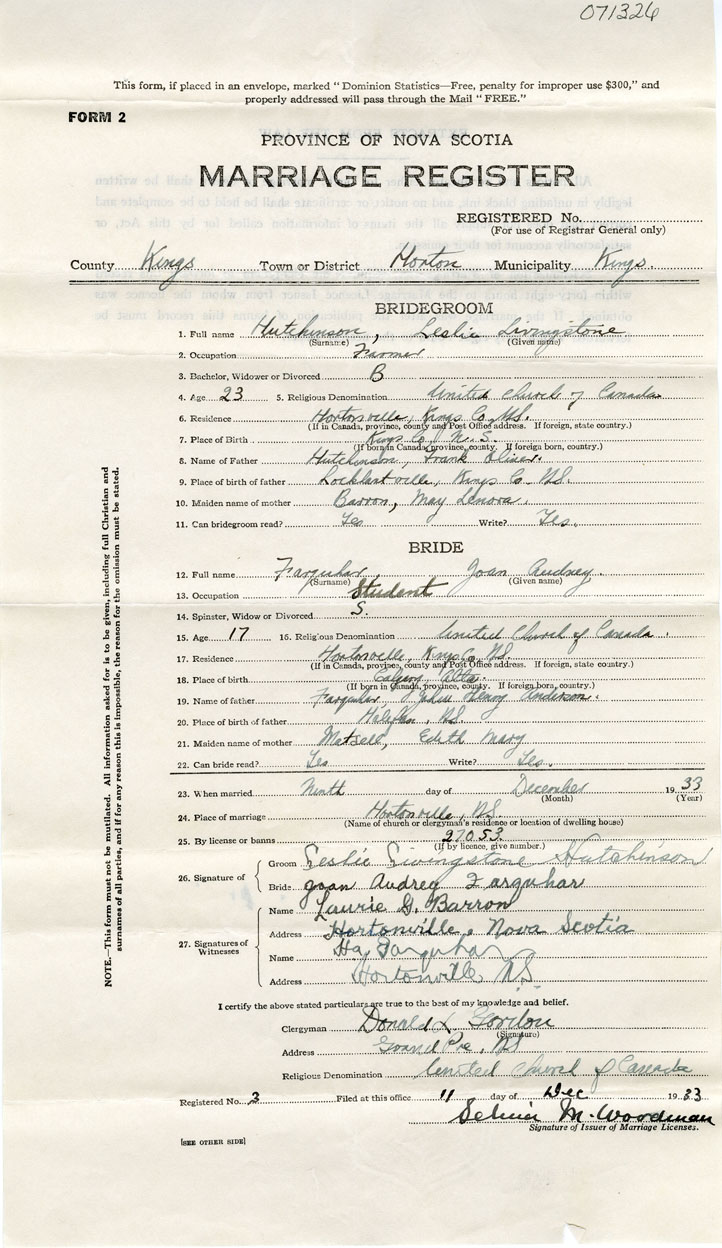 071326
This form, if placed in an envelope, marked "Dominion Statistics—Free, penalty for improper use $300," and
properly addressed will pass through the Mail "FREE."
FORM 2
PROVINCE OF NOVA SCOTIA
MARRIAGE REGISTER
REGISTERED No.
(For use of Registrar General only)
County Kings Town or District Horton Municipality Kings.
BRIDEGROOM
1. Full name Hutchinson, Leslie Livingstone
(Surname) (Given name)
2. Occupation Farmer
3. Bachelor, Widower or Divorced B
4. Age 23 5. Religious Denomination United Church of Canada
6. Residence Hortonville, Kings Co. N.S.
(If in Canada, province, county and Post Office address. If foreign, state country.)
7. Place of Birth Kings Co. N.S.
(If born in Canada, province, county. If foreign born, country.)
8. Name of Father Hutchinson, Frank Oliver.
9. Place of birth of father Lockhartville, Kings Co. N.S.
10. Maiden name of mother Barron, May Lenora.
11. Can bridegroom read? Yes Write? Yes.
BRIDE
12. Full name Farquhar, Joan Audrey.
(Surname) (Given name)
13. Occupation Student
14. Spinster, Widow or Divorced S.
15. Age 17 16. Religious Denomination United Church of Canada.
17. Residence Hortonville, Kings Co. N.S.
(If in Canada, province, county and Post Office address. If foreign, state country.)
18. Place of birth Calgary, Alta.
(If born in Canada, province, county. If foreign born, country.)
19. Name of father Farquhar, Henry Anderson.
20. Place of birth of father Halifax, N.S.
21. Maiden name of mother Edith Mary
22. Can bride read? Yes Write? Yes.
23. When married Ninth day of December 1933
(Month) (Year)
24. Place of marriage Hortonville, N.S.
(Name of church or clergyman's residence or location of dwelling house)
25. By license or banns 27053
(If by licence, give number.)
26. Signature of
Groom Leslie Livingstone Hutchinson
Bride Joan Audrey Farquhar
27. Signatures of Witnesses
Name Laurie G. Barron
Address Hortonville, Nova Scotia
Name Farquhar
Address Hortonville N.S.
I certify the above stated particulars are true to the best of my knowledge and belief.
Clergyman Donald L. Gordon
(Signature)
Address Grand Pre, N.S.
Religious Denomination United Church of Canada
Registered No. 3 Filed at this office 11 day of Dec 1933
M. Woodman
Signature of Issuer of Marriage Licenses.
[SEE OTHER SIDE]
NOTE.—This form must not be mutilated. All information asked for is to be given, including full Christian and
surnames of all parties, and if for any reason this is impossible, the reason for the omission must be stated.